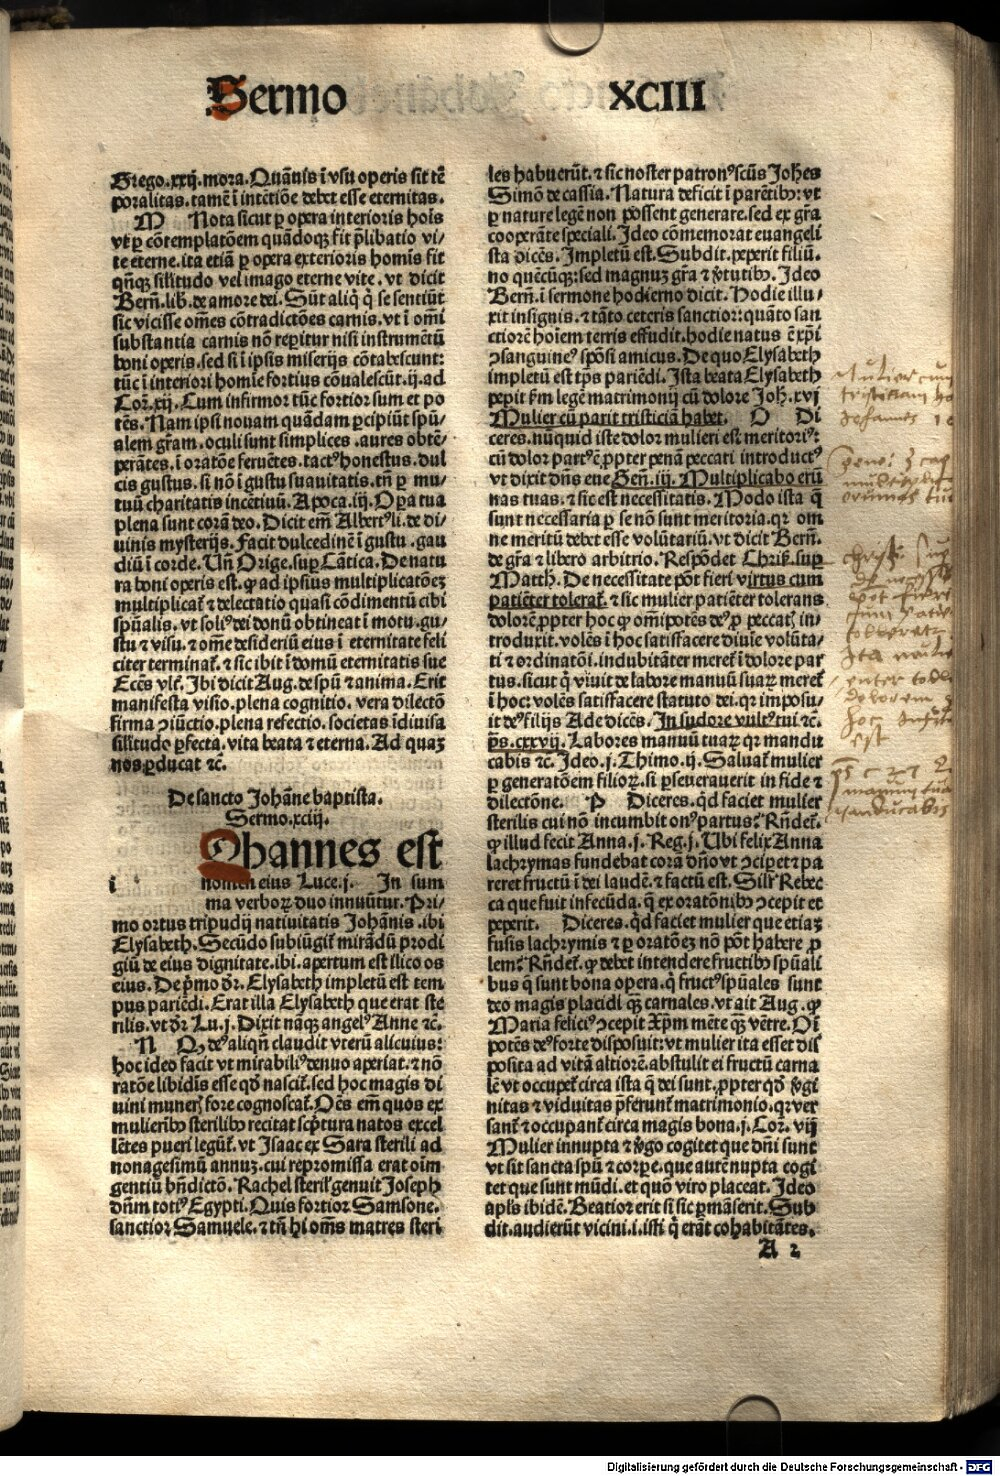 Sermo XCIII
Grego.xxij.mora.Quãuis ĩ vsu operis sit tẽ
poralitas.tamẽ ĩ intẽtiõe debet esse eternitas.
M Nota sicut ꝑ opera interioris hoĩs
vt ꝑ cõtemplatõem quãdoqꝫ fit p̃libatio vi/
te eterne.ita etiã ꝑ opera exterioris homĩs fit
qñqꝫ sil̃itudo vel imago eterne vite.vt dicit
Bern̄.lib.de amore dei.Sũt aliq̃ q̃ se sentiũt
sic vicisse om̃es cõtradictões carnis.vt ĩ om̃i
substantia carnis nõ repitur nisi instrumẽtũ
boni operis.sed si ĩ ipsis miserijs cõtabescunt:
tũc ĩ interiori homie fortius cõualescũt.ij.ad
Cor̃.xij.Cum infirmor tũc fortior sum et po
tẽs.Nam ipsi nouam quãdam ꝑcipiũt spũ/
alem gr̃am.oculi sunt simplices.aures obtẽ/
perãtes.ĩ oratõe feruẽtes.tactꝰ honestus.dul
cis gustus.si nõ ĩ gustu suauitatis.tñ ꝑ mu/
tuũ charitatis incẽtiuũ.Apoca.iij.Opa tua
plena sunt corã deo.Dicit em̃ Albertꝰ li.de di/
uinis mysterijs.Facit dulcedinẽ ĩ gustu.gau
diũ ĩ corde.Uñ Orige.suꝑ Cãtica.De natu
ra boni operis est.ꝙ ad ipsius multiplicatõeꝫ
multiplicat̃ ⁊ delectatio quasi cõdimentũ cibi
spũalis.vt soliꝰ dei donũ obtineat ĩ motu.gu/
stu ⁊ visu.⁊ om̃e desideriũ eius ĩ eternitate feli
citer terminat̃.⁊ sic ibit ĩ domũ eternitatis sue
Ecc̃s vlt̃.Ibi dicit Aug.de spũ ⁊ anima.Erit
manifesta visio.plena cognitio.vera dilectõ
firma ꝯiũctio.plena refectio.societas ĩdiuisa
sil̃itudo ꝑfecta.vita beata ⁊ eterna.Ad quaꝫ
nos ꝑducat ⁊c̃.
De sancto Johãne baptista.
Sermo.xciij.
Ohannes est
i nomen eius Luce.j. In sum
ma verboꝝ duo innuũtur.Pri/
mo ortus tripudij natiuitatis Johãnis.ibi
Elysabeth.Secũdo subiũgit̃ mirãdũ prodi
giũ de eius dignitate.ibi.apertum est ilico os
eius.De p̃mo dr̃.Elysabeth impletũ est tem
pus pariẽdi.Erat illa Elysabeth que erat ste
rilis.vt dr̃ Lu.j.Dixit nãqꝫ angelꝰ Anne ⁊c̃.
N Qꝫ deꝰ aliqñ claudit vterũ alicuius:
hoc ideo facit vt mirabiliꝰ denuo aperiat.⁊ nõ
ratõe libidĩs esse qđ nascit̃.sed hoc magis di
uini muneris fore cognoscat̃.Oẽs em̃ quos ex
mulierib⁹ sterilib⁹ recitat scp̃tura natos excel
lẽtes pueri legũt̃.vt Isaac ex Sara sterili ad
nonagesimũ annuꝫ.cui repromissa erat oĩm
gentiũ bñdictõ.Rachel steril̃ genuit Joseph
dñm totiꝰ Egypti.Quis fortior Samsone.
sanctior Samuele.⁊ tñ hi om̃s matres steri
les habuerũt.⁊ sic noster patronꝰ scũs Johẽs
Simõ de cassia.Natura deficit ĩ parẽtib⁹:vt
ꝑ nature legẽ non possent generare.sed ex gr̃a
cooperãte speciali.Ideo cõmemorat euangeli
sta dicẽs.Impletũ est.Subdit.peperit filiũ.
no quẽcũqꝫ:sed magnuꝫ gr̃a ⁊ v̓tutib⁹.Ideo
Bern̄.ĩ sermone hodierno dicit.Hodie illu/
xit insignis.⁊ tãto ceteris sanctior:quãto san
ctiorẽ hoĩem terris effudit.hodie natus ẽ xp̃i
ꝯsanguineꝰ spõsi amicus.De quo Elysabeth
impletũ est tp̃s pariẽdi.Ista beata Elysabeth
pepit k̃m legẽ matrimonij cũ dolore Joh.xvj
Mulier cũ parit tristiciã habet. O Di
ceres.nũquid iste dolor mulieri est meritoriꝰ:
cũ dolor partꝰ ẽ ꝓpter penã peccati introductꝰ
vt dixit dñs eue Geñ.iij.Multiplicabo erũ
nas tuas.⁊ sic est necessitatis.Modo ista q̃
sunt necessaria ꝑ se nõ sunt meritoria.qꝛ om
ne meritũ debet esse volũtariũ.vt dicit Bern̄.
de gr̃a ⁊ libero arbitrio.Respõdet Chris̃.suꝑ
Matth.De necessitate põt fieri virtus cum
patiẽter tolerat̃.⁊ sic mulier patiẽter tolerans
dolorẽ ꝓpter hoc ꝙ omĩpotẽs deꝰ ꝑ peccatũ in/
troduxit.volẽs ĩ hoc satisfacere diuĩe volũta/
ti ⁊ ordinatõi.indubitãter meret̃ ĩ dolore par
tus.sicut q̃ viuit de labore manuũ suaꝝ meret̃
ĩ hoc:volẽs satisfacere statuto dei.qꝛ imposu/
it deꝰ filijs Ade dicẽs.In sudore vultꝰ tui ⁊c̃.
p̃s.cxxvij.Labores manuũ tuaꝝ qꝛ mandu
cabis ⁊c̃.Ideo.j.Thimo.ij.Saluat̃ mulier
ꝑ generatõem filioꝝ.si ꝑseuerauerit in fide ⁊
dilectõne. P Diceres.qđ faciet mulier
sterilis cui nõ incumbit onꝰ partus?Rñdet̃.
ꝙ illud fecit Anna.j.Reg.j.Ubi felix Anna
lachrymas fundebat corã dño vt ꝯcipet ⁊ pa
reret fructũ ĩ dei laudẽ.⁊ factũ est.Sil̃r Rebec
ca que fuit infecũda.q̃ ex oratõnib⁹ ꝯcepit et
peperit. Diceres.qđ faciet mulier que etiaꝫ
fusis lachrymis ⁊ ꝑ oratõeꝫ nõ põt habere ꝓ
lem?Rñdet̃.ꝙ debet intendere fructib⁹ spũali
bus q̃ sunt bona opera.q̃ fructꝰ spũales sunt
deo magis placidi qꝫ carnales.vt ait Aug.ꝙ
Maria feliciꝰ ꝯcepit Xp̃m mẽte qꝫ vẽtre.Oĩ
potẽs deꝰ forte disposuit:vt mulier ita esset dis
posita ad vitã altiorẽ.abstulit ei fructũ carna
lẽ vt occupet̃ circa ista q̃ dei sunt.ꝓpter qđ v̓gi
nitas ⁊ viduitas p̃ferunt̃ matrimonio.qꝛ ver
sant̃ ⁊ occupant̃ circa magis bona.j.Cor̃.vij
Mulier innupta ⁊ v̓go cogitet que dñi sunt
vt sit sancta spũ ⁊ corꝑe.que autẽ nupta cogi
tet que sunt mũdi.et quõ viro placeat.Ideo
apl̃s ibidẽ.Beatior erit si sic ꝑmãserit.Sub
dit.audierũt vicini.i.isti q̃ erãt cohabitãtes.
A 2
Mulier cum
tristitiam
Johannes 16
Gene: 3 cap
erumnas tu
pot fieri
cum patie
tollerat
Ita mulie
dolorem
hoc
est
manuum tua
manducabis
Digitalisierung gefördert durch die Deutsche Forschungsgemeinschaft - DFG